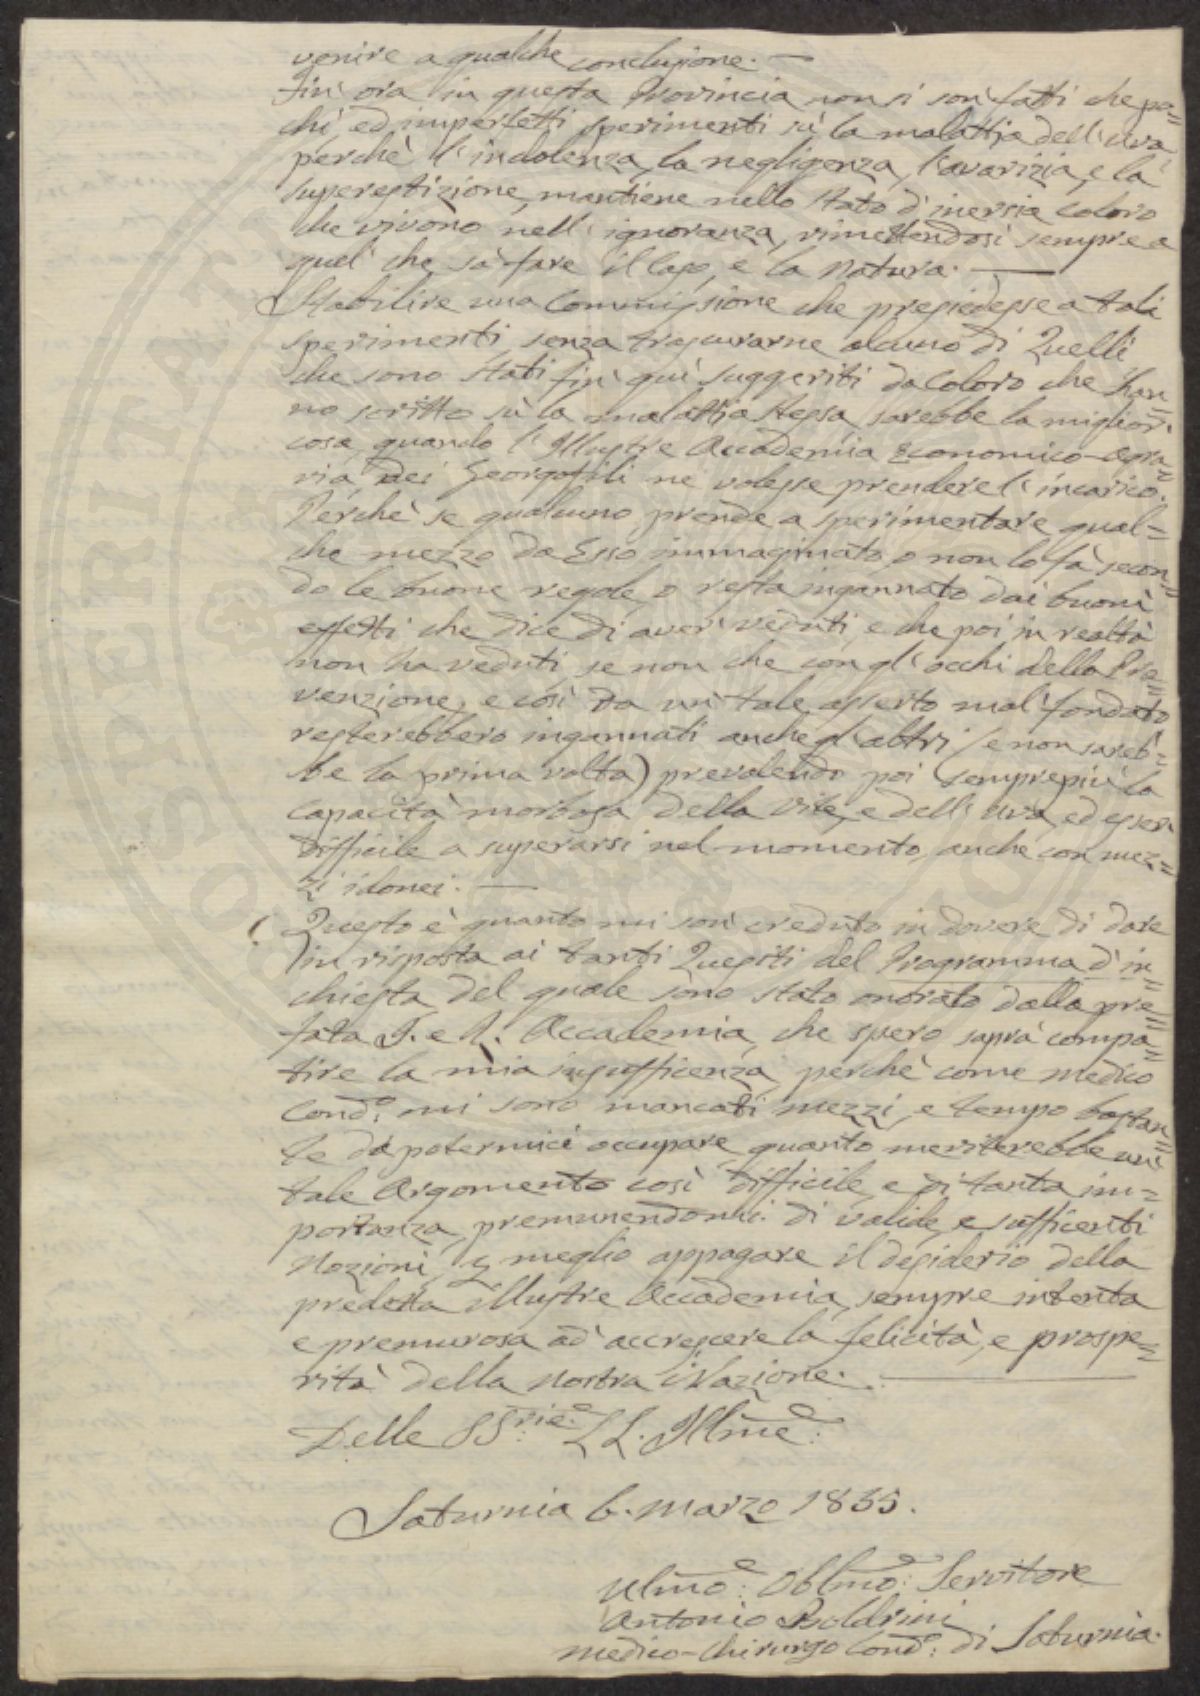 venire a qualche conclusione. —
Fin' ora in questa Provincia non si son' fatti che po=
chi, ed imperfetti sperimenti sù la malattia dell' Uva
perchè l' indolenza, la negligenza, l' avarizia, e la
superstizione, mantiene nello stato d' inersia coloro
che vivono nell' ignoranza, rimettendosi sempre a
quel' che sà fare il Caso, e la Natura. —
Stabilire una Commissione che presiedesse a tali
sperimenti, senza trascurarne alcuno di Quelli
che sono stati fin' quì suggeriti da Coloro che han=
no scritto sù la malattia stessa, sarebbe la miglior'
cosa, quando l' Illustre Accademia Economico-Agra=
ria dei Georgofili ne volesse prendere l' incarico.
Perchè se qualcuno prende a sperimentare qual=
che mezzo da Esso immaginato, o non lo fà secon=
do le buone regole, o resta ingannato dai buoni
effetti che dice di aver' veduti, e che poi in realtà
non ha veduti se non che con gl' occhi della Pre=
venzione, e così da un' tale asserto mal' fondato
resterebbero ingannati anche gl' altri (e non sareb=
be la prima volta) prevalendo poi semprepiù la
capacità morbosa della Vite, e dell' Uva, ed esser'
difficile a superarsi nel momento, anche con mez=
zi idonei. —
Questo è quanto mi son' creduto in dovere di dare
in risposta ai tanti Quesiti del Programma d' in=
chiesta del quale sono stato onorato dalla pre=
fata I. e R. Accademia, che spero saprà compa=
tire la mia insufficenza, perchè come Medico
Cond.º mi sono mancati mezzi, e tempo bastan=
te da potermici occupare, quanto meriterebbe un'
tale Argomento così difficile, e di tanta im=
portanza, premunendomi di valide, e sufficenti
Nozioni, meglio appagare il desiderio della
predetta illustre Accademia, sempre intenta
e premurosa ad accrescere la felicità, e prospe=
rità della nostra Nazione. —
Delle SS.rie LL. Ill̃me.
Saturnia 6. Marzo 1855.
Ulm̃o: Oblm̃o: Servitore
Antonio Boldrini
Medico-Chirurgo Cond.º: di Saturnia.